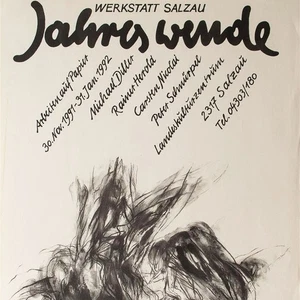 WERKSTATT SALZAU
Jahreswende
Arbeiten auf Papier
30. Nov. 1991 - 31. Jan. 1992
Michael Diller
Rainer Herold
Carsten Nicolai
Peter Schnürpel
Landeskulturzentrum
2317 Salzau
Tel. 04303/180